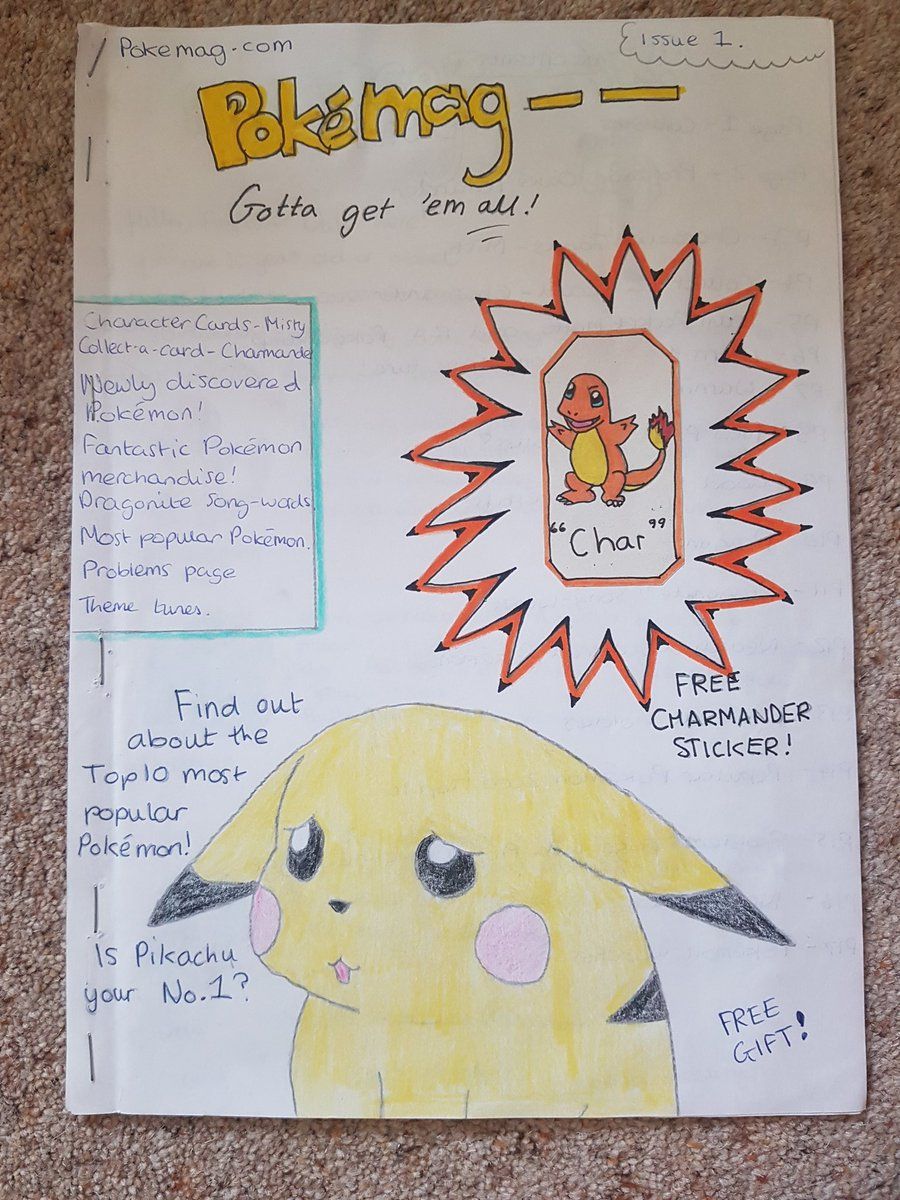 Pokemag.com
Issue 1.
Pokémag--
Gotta get 'em all!
Character Cards-Misty
Collect-a-card-Charmander
Newly discovered
Pokémon!
Fantastic Pokémon
merchandise!
Dragonite Song-words
Most popular Pokémon.
Problems page
Theme tunes.
"Char"
FREE
CHARMANDER
STICKER!
Find out
about the
Top 10 most
popular
Pokémon!
Is Pikachu
your No.1?
FREE
GIFT!